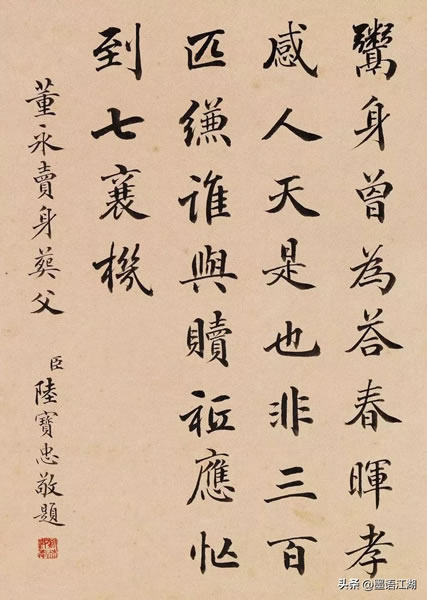 鬻身曾為荅春暉孝
感人天是也非三百
匹縑誰與贖祗應忙
到七襄機
董永賣身葬父
臣陸寶忠敬題
头条 @墨语江湖